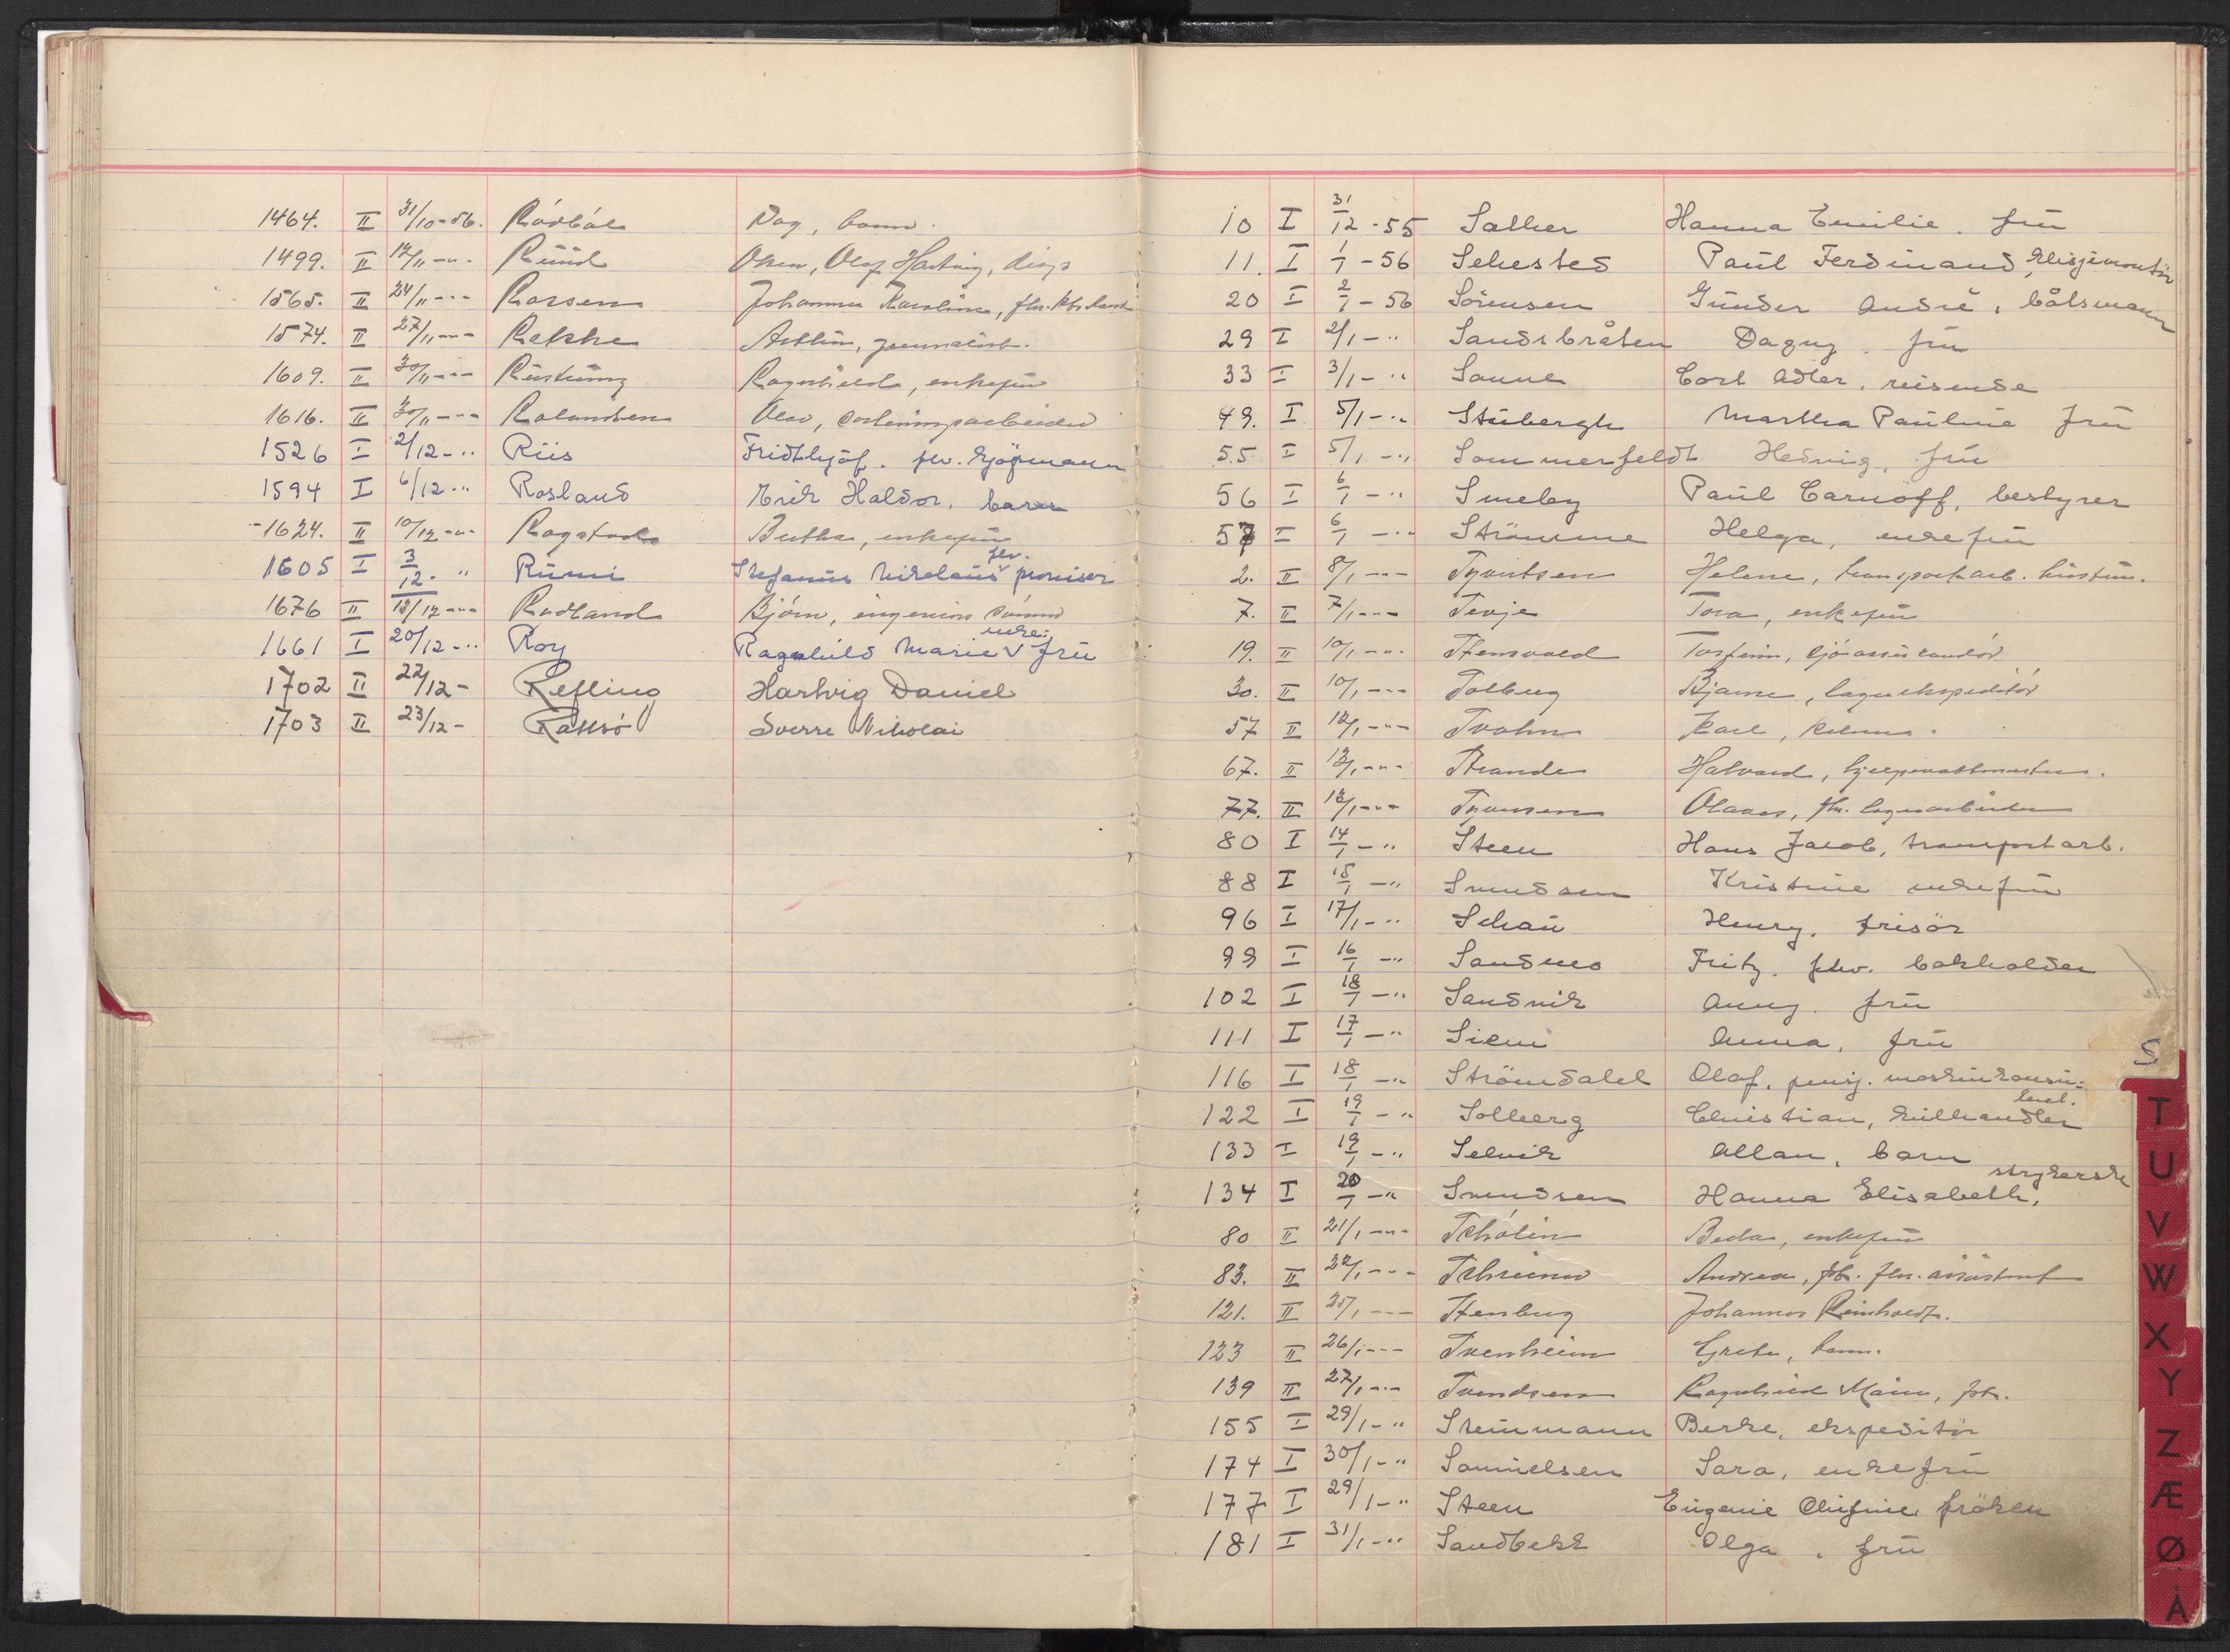 1464. II 31/10-56. Rådbål Dag, barn.
1499. II 12/11 -"- Ruud Olaf Hartvig,
1565. II 24/11 -"- Johanna Karoline,
1574. II 27/11 -"- Rakke journalist.
1609. II 30/11 -"- Rustung Ragnhild, enkefru
1616. II 30/11 -"- Rolandsen Olav,
1526 I 2/12 -" Riis Fridthjof. fhv. sjömann
1594 I 6/12 -" Rosland Erik Haldor. barn
1624. II 10/12 -"- Rogstad enkefru
1605 I 3/12 - " Stefanus Nikolaus fhv.
1676 II 13/12 -"- Rudland Björn, ingeniör
1661 I 20/12 -" Roy Ragnhild Marie enke: fru
1702 II 22/12 - Refling Hartvig Daniel
1703 II 23/12 - Raksö Sverre Nikolai
10 I 31/12 -55 Sæther Hanna Emilie. fru
11. I 1/1 -56 Sehested Paul Ferdinand,
20 I 2/1 -56 Sörensen Gunder André, båtsmann
29 I 2/1 -" Sandsbråten Dagny. fru
33 I 3/1 -" Sanne Carl Adler, reisende
49. I 5/1 -" Stubergh Martha Pauline fru
55 I 5/1 -" Sommerfeldt Hedvig, fru
56 I 6/1 -" Smeby Paul Carnoff, bestyrer
57 I 6/1 -" Strömme Helga, enkefru
2. II 8/1 -"- Syvertsen Helene, transportarb. hustru.
7. II 7/1 -"- Tora, enkefru
19. II 10/1 -"- Stensvold
30. II 10/1 -"- Solberg Bjarne, lagerekspeditör
57 II 12/1 -"- Karl,
67. II 13/1 -"- Strande Halvard,
77. II 13/1 -"- Syversen fhv. lagerarbeider
80 I 14/1 -" Steen Hans Jacob, transportarb.
88 I 15/1 -" Svendsen Kristine enkefru
96 I 17/1 -" Schau Henry, frisör
99 I 16/1 -" Sandmo Fritz, fhv. bokholder
102 I 18/1 -" Sandvik Anny. fru
111 I 17/1 -" Siem Anna, fru
116 I 18/1 -" Strömdahl Olaf, pensj. maskinkonsu:lent.
122 I 19/1 -" Solberg Christian, kullhandler
133 I 19/1 -" Selvik Allan, barn
134 I 20/1 -" Svendsen Hanna Elisabeth, strykerske
80 II 21/1 -"- Schölin Beda, enkefru
83. II 22/1 -"- Andrea, frk. fhv. assistent
121. II 25/1 -"- Stenberg Johannes Reinholdt.
123 II 26/1 -"- Svenheim Grete, barn.
139 II 27/1 -"- Svendsen Ragnhild frk.
155 I 29/1 -" Steinmann ekspeditör
174 I 30/1 -" Samuelsen Sara, enkefru
177 I 29/1 -" Steen Eugenie fröken
181 I 31/1 -" Sandbekk Olga, fru
S
T
U
V
W
X
Y
Z
Æ
Ø
Å